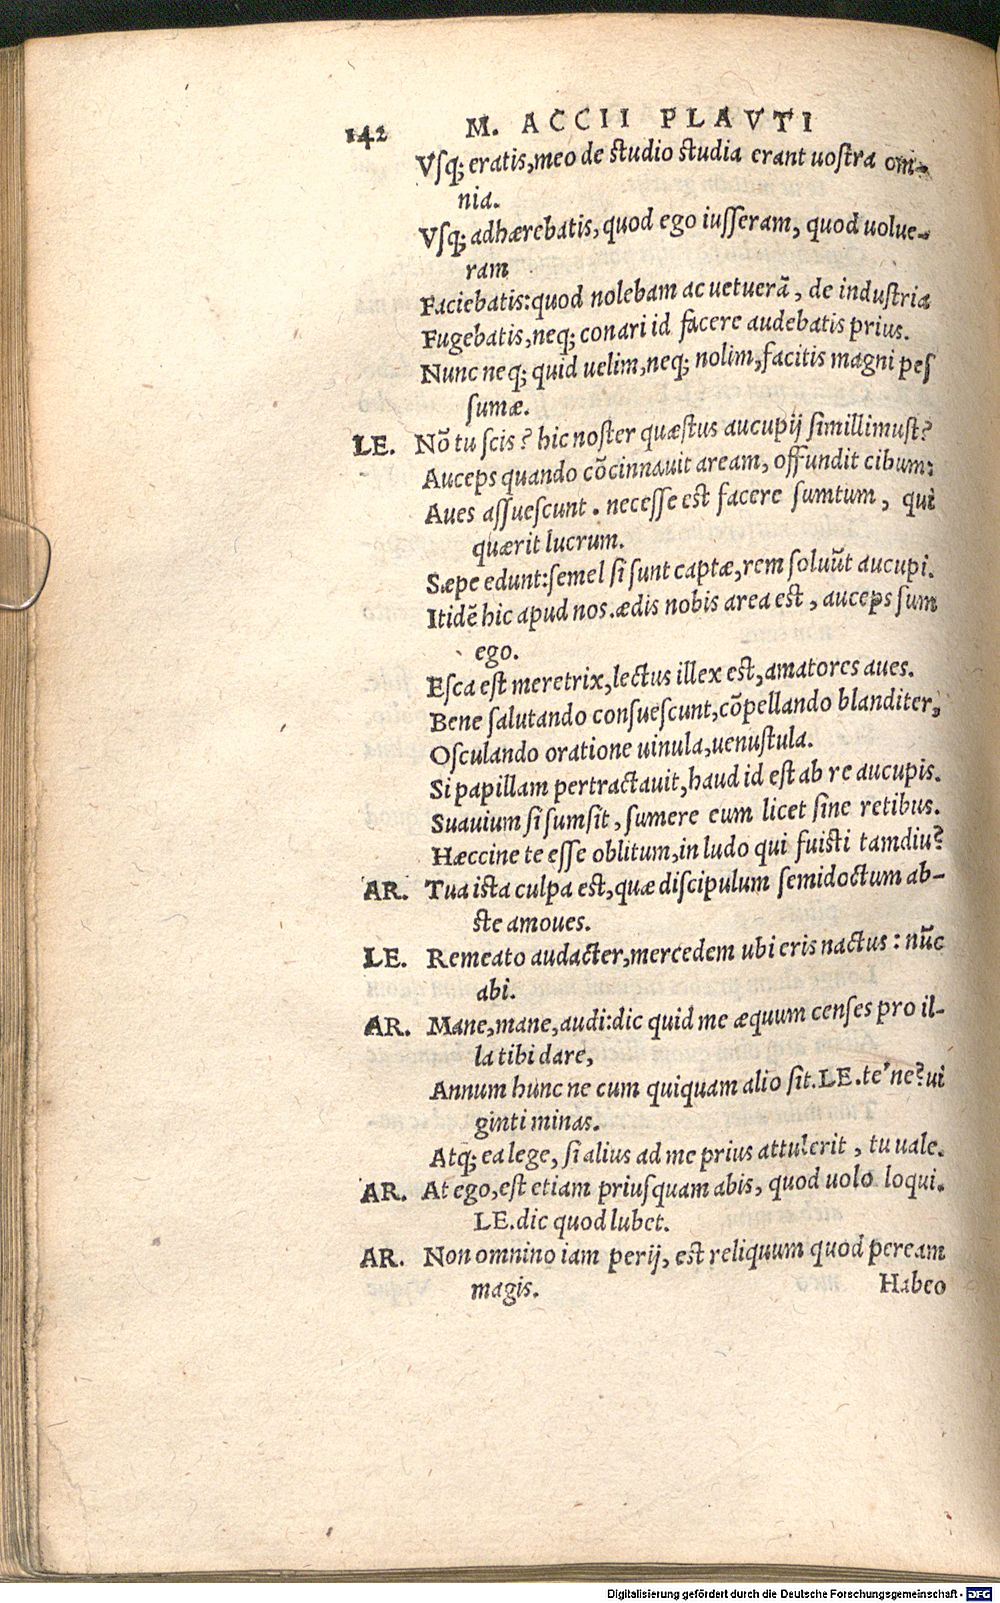 142 M. ACCII PLAVTI
Vſq; eratis, meo de ſtudio ſtudia erant uoſtra om-
nia.
Vſq; adhærebatis, quod ego iuſſeram, quod uolue-
ram
Faciebatis: quod nolebam ac uetuerã, de induſtria
Fugebatis, neq; conari id facere audebatis prius.
Nunc neq; quid uelim, neq; nolim, facitis magni peſ
ſumæ.
LE. Nõ tu ſcis? hic noſter quæſtus aucupij ſimillimuſt?
Auceps quando cõcinnauit aream, offundit cibum:
Aues aſſueſcunt. neceſſe eſt facere ſumtum, qui
quærit lucrum.
Sæpe edunt: ſemel ſi ſunt captæ, rem ſoluũt aucupi.
Itidẽ hic apud nos. ædis nobis area eſt, auceps ſum
ego.
Eſca eſt meretrix, lectus illex eſt, amatores aues.
Bene ſalutando conſueſcunt, cõpellando blanditer,
Oſculando oratione uinula, uenuſtula.
Si papillam pertractauit, haud id eſt ab re aucupis.
Suauium ſi ſumſit, ſumere eum licet ſine retibus.
Hæccine te eſſe oblitum, in ludo qui fuiſti tamdiu?
AR. Tua iſta culpa eſt, quæ diſcipulum ſemidoctum ab-
ſte amoues.
LE. Remeato audacter, mercedem ubi eris nactus: nũc
abi.
AR. Mane, mane, audi: dic quid me æquum cenſes pro il-
la tibi dare,
Annum hunc ne cum quiquam alio ſit. LE. te'ne? ui
ginti minas.
Atq; ea lege, ſi alius ad me prius attulerit, tu uale.
AR. At ego, eſt etiam priuſquam abis, quod uolo loqui.
LE. dic quod lubet.
AR. Non omnino iam perij, eſt reliquum quod peream
magis. Habeo
Digitalisierung gefördert durch die Deutsche Forschungsgemeinschaft - DFG